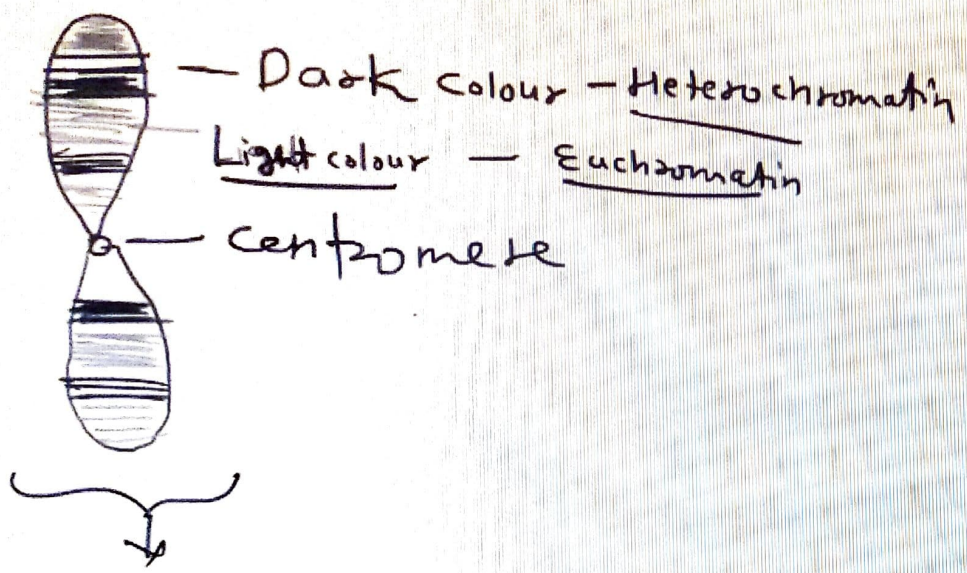 — Dark colour — Heterochromatin
Light colour — Euchromatin
— Centromere